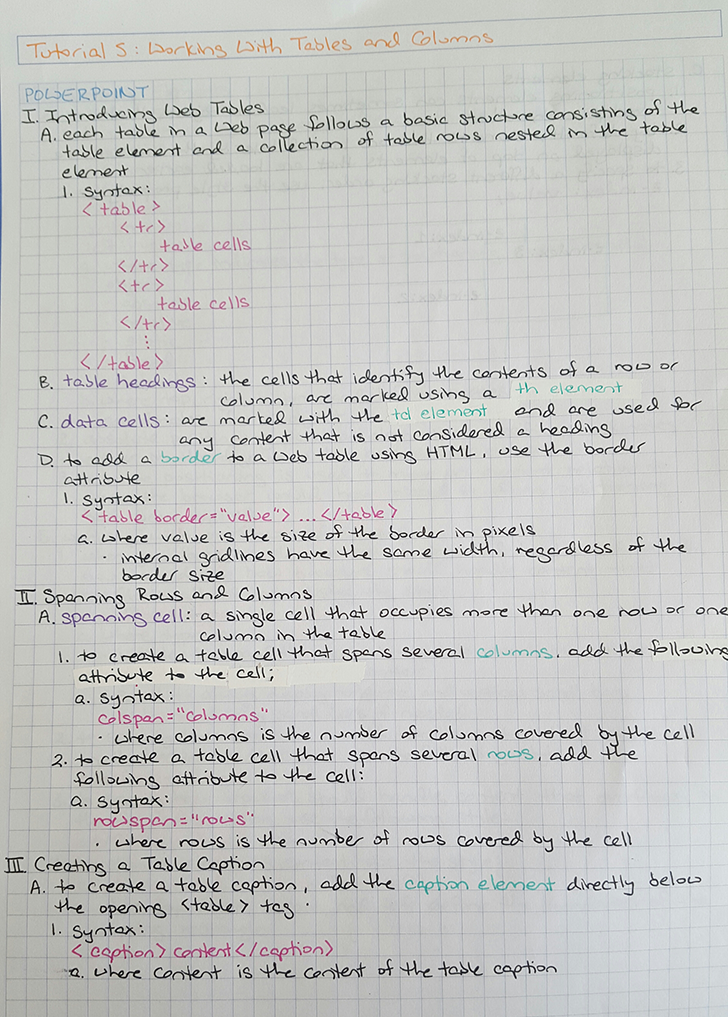 Tutorial 5: Working With Tables and Columns
POWERPOINT
I. Introducing Web Tables
A. each table in a Web page follows a basic structure consisting of the
table element and a collection of table rows nested in the table
element
1. syntax:
<table>
<tr>
table cells
</tr>
<tr>
table cells
</tr>
⋮
</table>
B. table headings: the cells that identify the contents of a row or
column, are marked using a th element
C. data cells: are marked with the td element and are used for
any content that is not considered a heading
D. to add a border to a Web table using HTML, use the border
attribute
1. syntax:
<table border="value"> ... </table>
a. where value is the size of the border in pixels
· internal gridlines have the same width, regardless of the
border size
II. Spanning Rows and Columns
A. spanning cell: a single cell that occupies more than one row or one
column in the table
1. to create a table cell that spans several columns, add the following
attribute to the cell;
a. syntax:
colspan="columns"
· where columns is the number of columns covered by the cell
2. to create a table cell that spans several rows, add the
following attribute to the cell:
a. syntax:
rowspan="rows"
· where rows is the number of rows covered by the cell
III. Creating a Table Caption
A. to create a table caption, add the caption element directly below
the opening <table> tag.
1. syntax:
<caption> content </caption>
a. where content is the content of the table caption